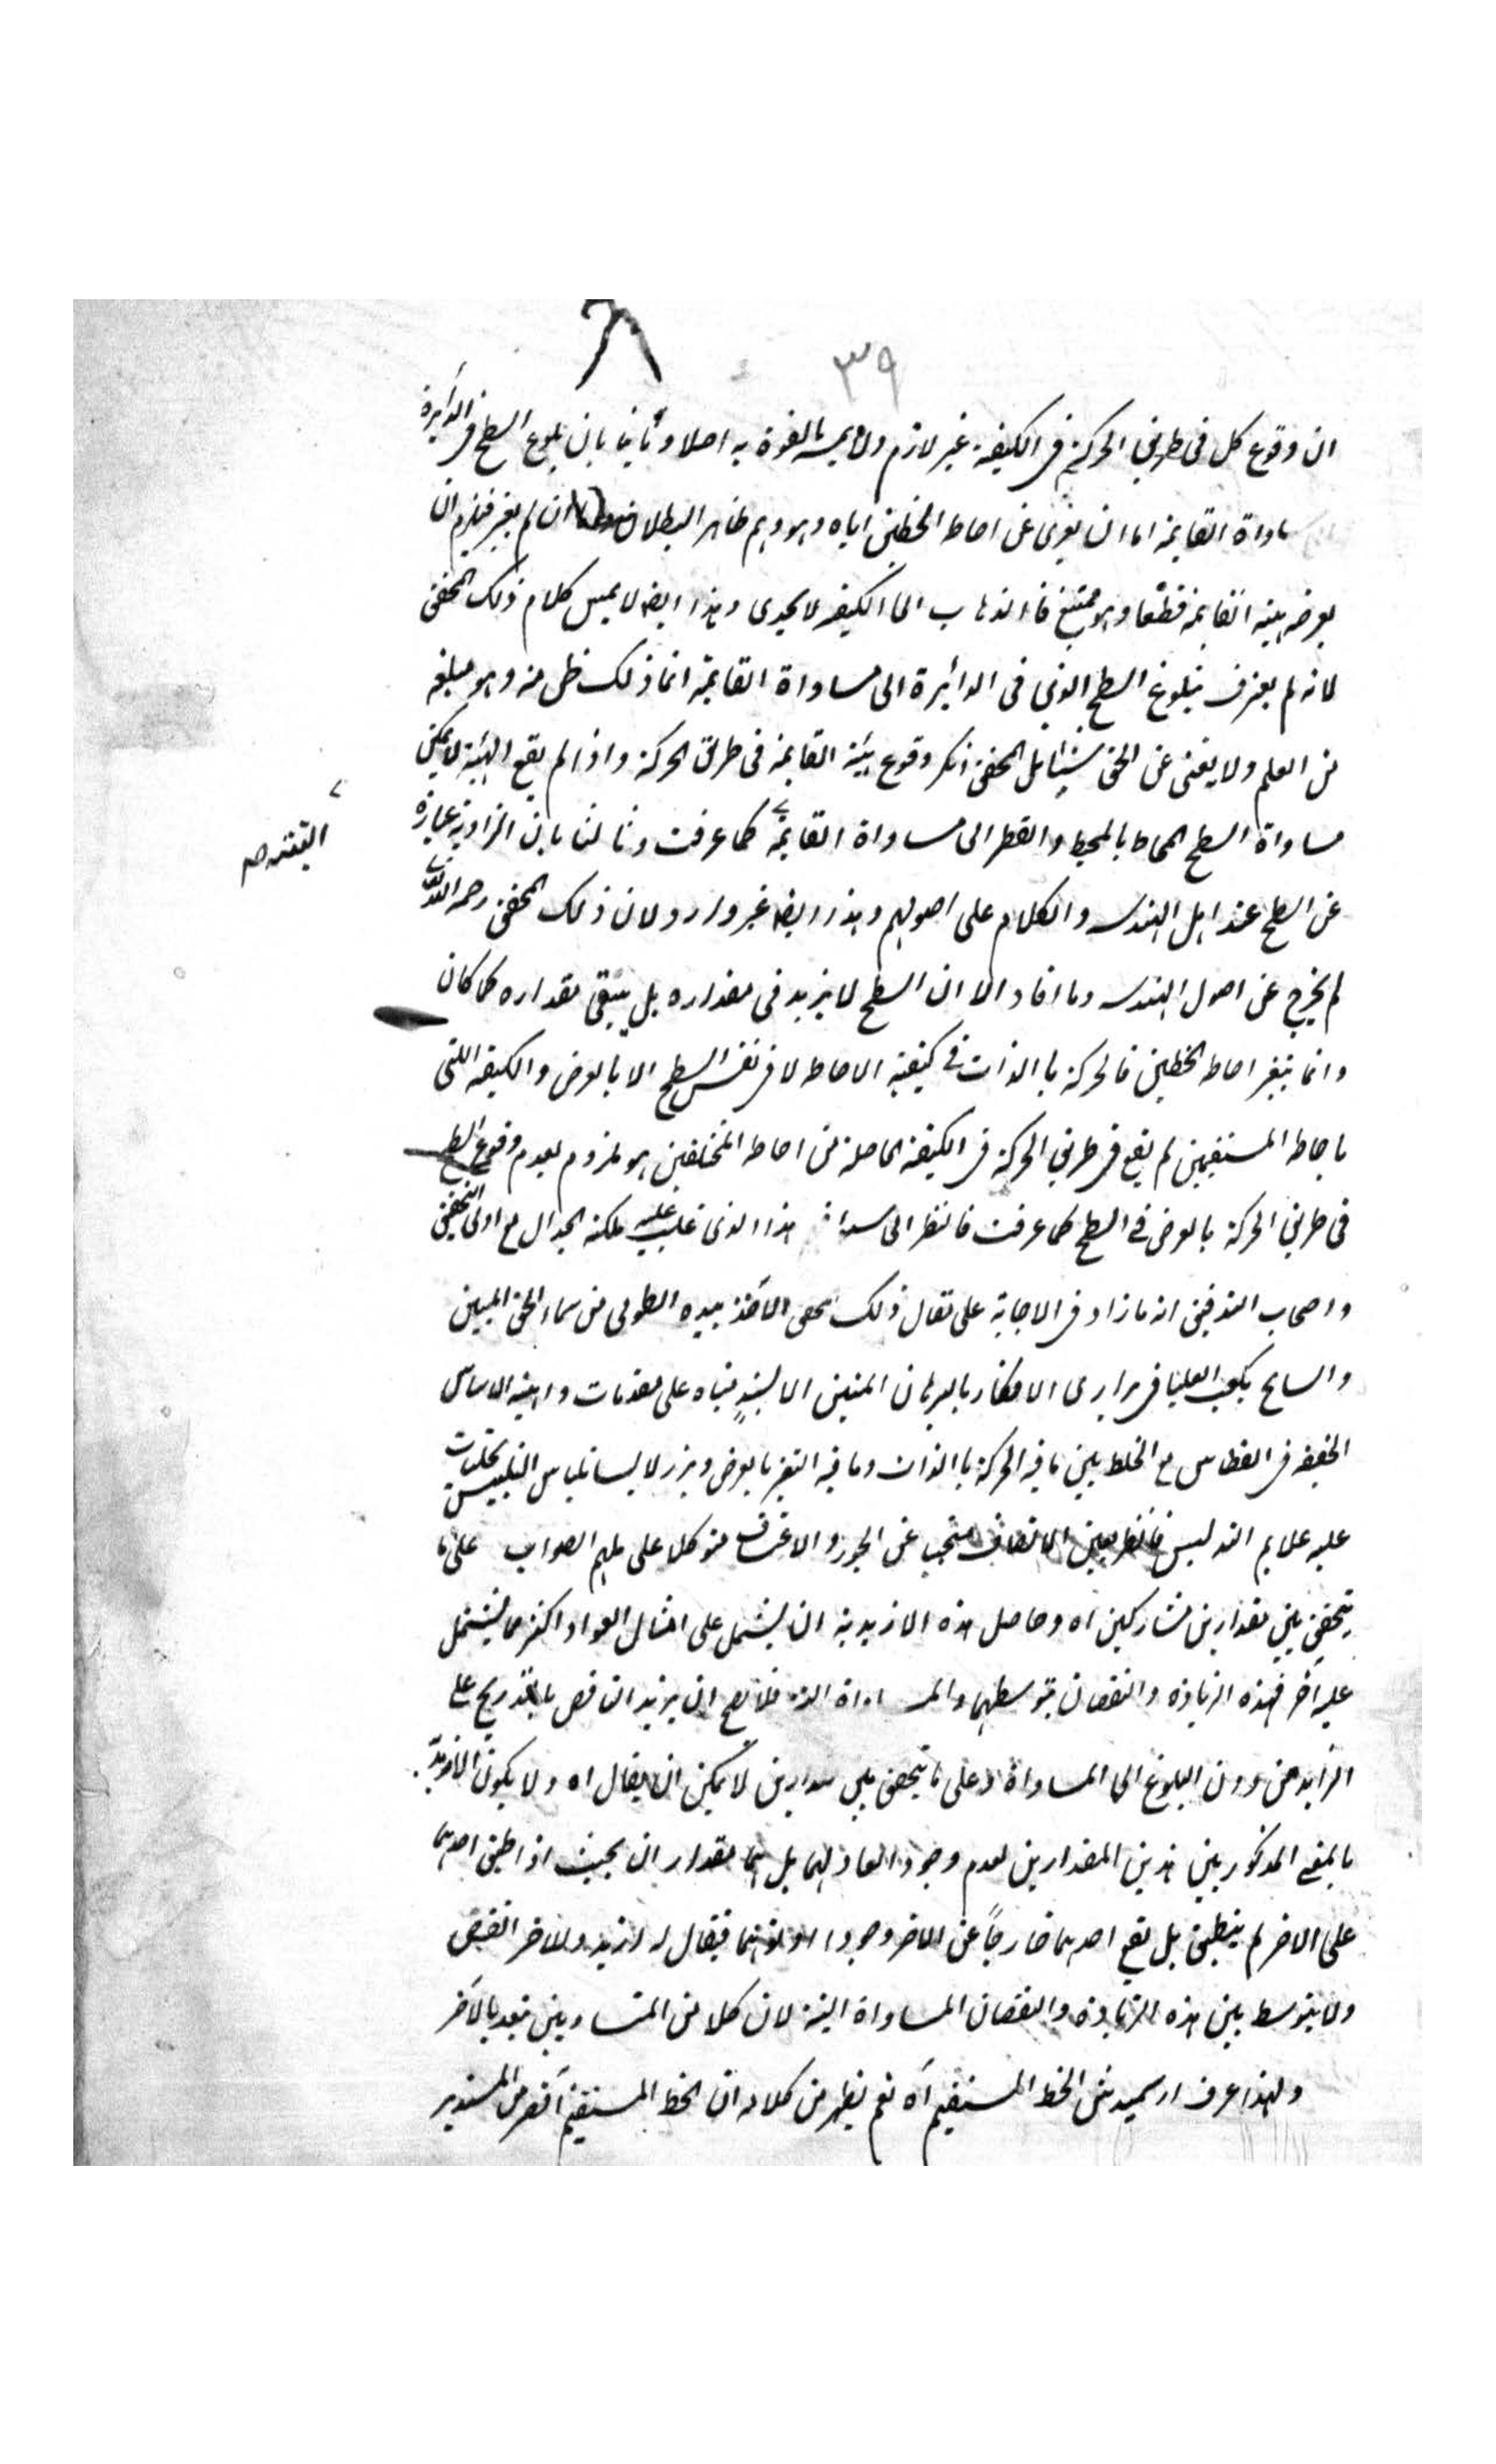 ٣٩
ان وقوع كل فى طريق الحركة فى الكيفية غير لازم ولا يمسه بالقوة به اصلا وثانيا بان بلوغ السطح فى الدائرة
مساواة القايمة اما ان يعرى عن احاطة الخطين اياه وهو وهم ظاهر البطلان ان لم يعز فيلزم ان
يعرضه هيئة القايمة قطعا وهو ممتنع فالذهاب الى الكيفية لا يجدى وهذا ايضا لا يمس كلام ذلك المحقق
لانه لم يعترف ببلوغ السطح الذى فى الدائرة الى مساواة القايمة انما ذلك ظن منه وهو مبلغه
من العلم ولا يغنى عن الحق شيئا بل المحقق انكر وقوع هيئة القايمة فى طريق الحركة واذا لم يقع الهيئة لا يمكن
مساواة السطح المحاط بالمحيط والقطر الى مساواة القايمة كما عرفت وثالثا بان الزاوية عبارة
عن السطح عند اهل الهندسه والكلام على اصولهم وهذا ايضا غير وارد لان ذلك المحقق رحمه الله
لم يخرج عن اصول الهندسه وما افاد الا ان السطح لا يزيد فى مقداره بل يبقى مقداره كما كان
وانما يتغير احاطة الخطين فالحركة بالذات فى كيفية الاحاطة لا فى نفس السطح الا بالعرض والكيفية اللتى
باحاطة المستقيمين لم يقع فى طريق الحركة فى الكيفية الحاصلة من احاطة المختلفين هو ملزوم لعدم وقوع السطح
فى طريق الحركة بالعرض فى السطح كما عرفت فانظر الى هذا الذى غلب عليه ملكة الجدال مع اولى التحقيق
واصحاب التدقيق انه ما زاد فى الاجابة على مقال ذلك المحقق الآخذ بيده الطولى من سماء الحق المبين
والسايح بكعبه العليا فى برارى الافكار بالبرهان المتين الا بناه على مقدمات واهية الاساس
الخفيفة فى القطاس مع الخلط بين ما فيه الحركة بالذات وما فيه التغير بالعرض وبرز لابسا بلباس التلبيس
عليه علايم التدليس فانظر بعين الانصاف متجنبا عن الجور والاعتساف متوكلا على ملهم الصواب على ما
يتحقق بين مقدارين متشاركين اه وحاصل هذه الازيدية ان يشتمل على امثال العواد اكثر مما يشتمل
عليه آخر فهذه الزيادة والنقصان يتوسطهما المساواة فلا يصح ان يزيد الناقص بالتدريج على
الزايد من دون البلوغ الى المساواة وعلى ما يتحقق بين مقدارين لا يمكن ان يقال اه ولا يكون الازيدية
بالمعنى المذكور بين هذين المقدارين لعدم وجود العاد لهما بل هما مقداران بحيث اذا طبق احدهما
على الاخر لم ينطبق بل يقع احدهما خارجا عن الاخر فيقال له ازيد وللاخر انقص
ولا يتوسط بين هذه الزيادة والنقصان المساواة البتة لان كلا من المتساويين يتقدر بالآخر
ولهذا عرف ارشميدس الخط المستقيم آه نعم يظهر من كلامه ان الخط المستقيم اقصر من المستدير